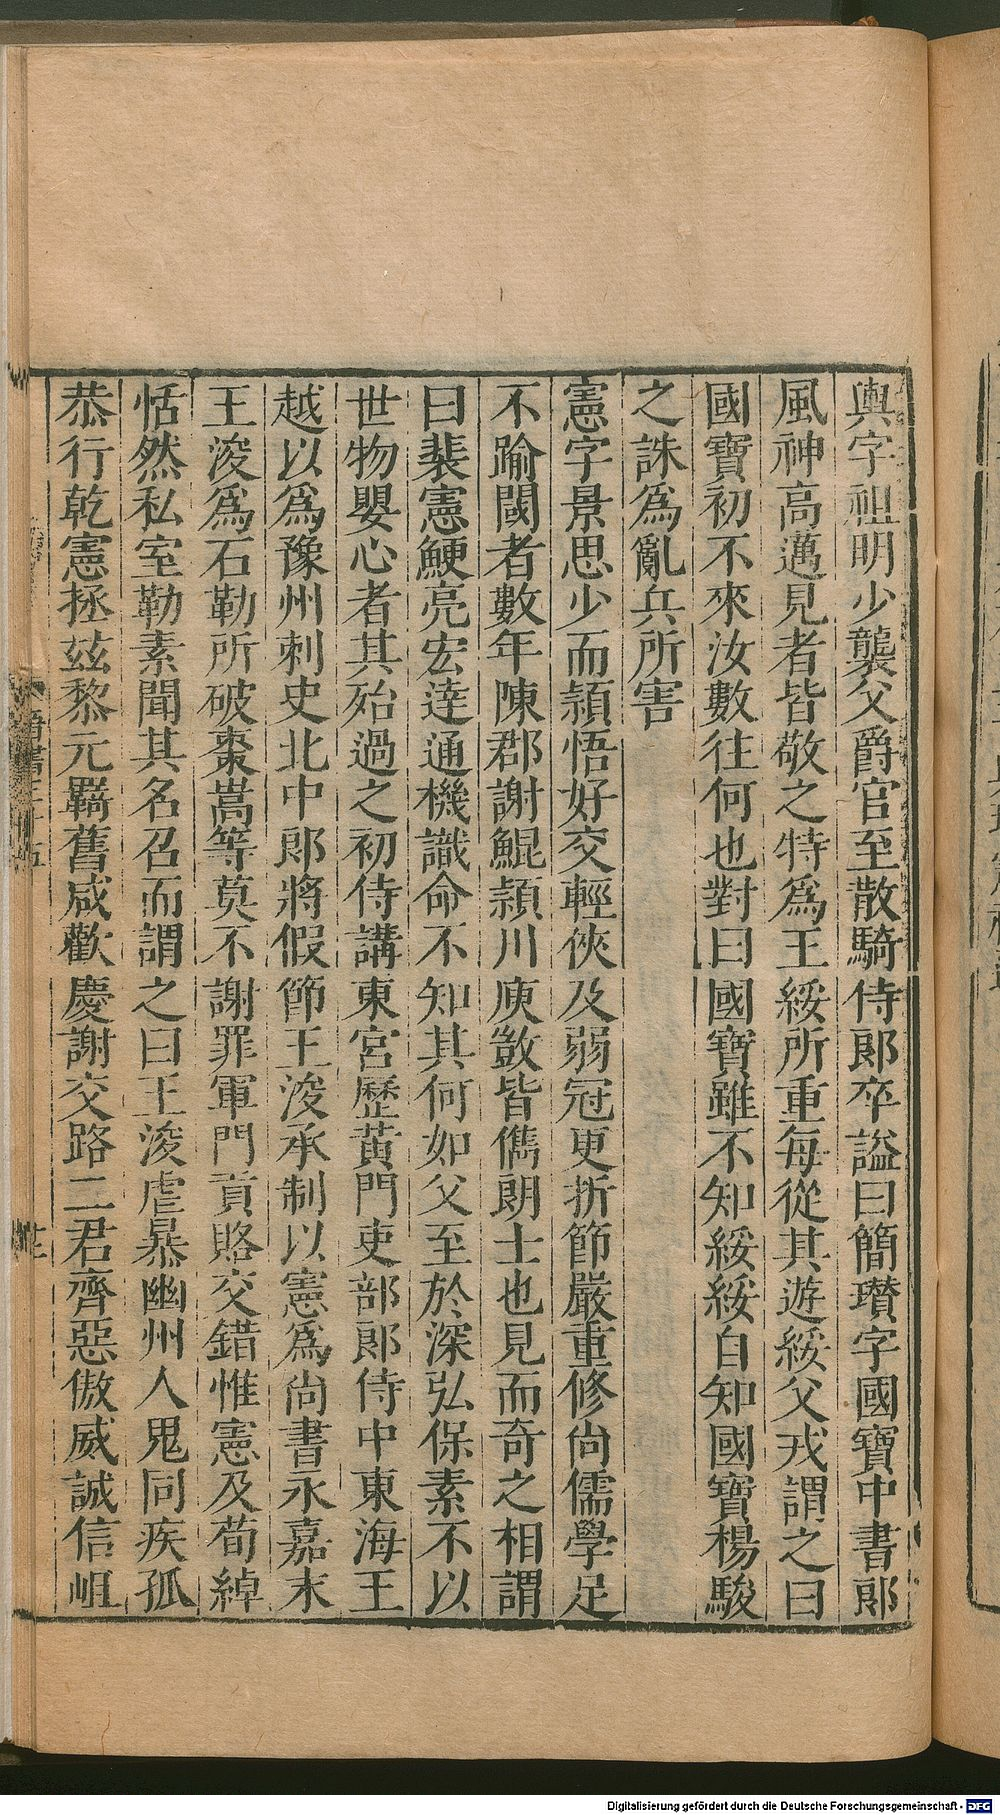 輿字祖明少襲父爵官至散騎侍郎卒謚曰簡瓚字國寶中書郎
風神高邁見者皆敬之特爲王綏所重每從其遊綏父戎謂之曰
國寶初不來汝數往何也對曰國寶雖不知綏綏自知國寶楊駿
之誅爲亂兵所害
憲字景思少而穎悟好交輕俠及弱冠更折節嚴重修尙儒學足
不踰閾者數年陳郡謝鯤穎川庾敳皆儁朗士也見而奇之相謂
曰裴憲鯁亮宏達通機識命不知其何如父至於深弘保素不以
世物嬰心者其殆過之初侍講東宮歷黃門吏部郎侍中東海王
越以爲豫州刺史北中郎將假節王浚承制以憲爲尙書永嘉末
王浚爲石勒所破棗嵩等莫不謝罪軍門貢賂交錯惟憲及荀綽
恬然私室勒素聞其名召而謂之曰王浚虐暴幽州人鬼同疾孤
恭行乾憲拯茲黎元羈舊咸歡慶謝交路二君齊惡傲威誠信岨
晉書三十五
Digitalisierung gefördert durch die Deutsche Forschungsgemeinschaft - DFG